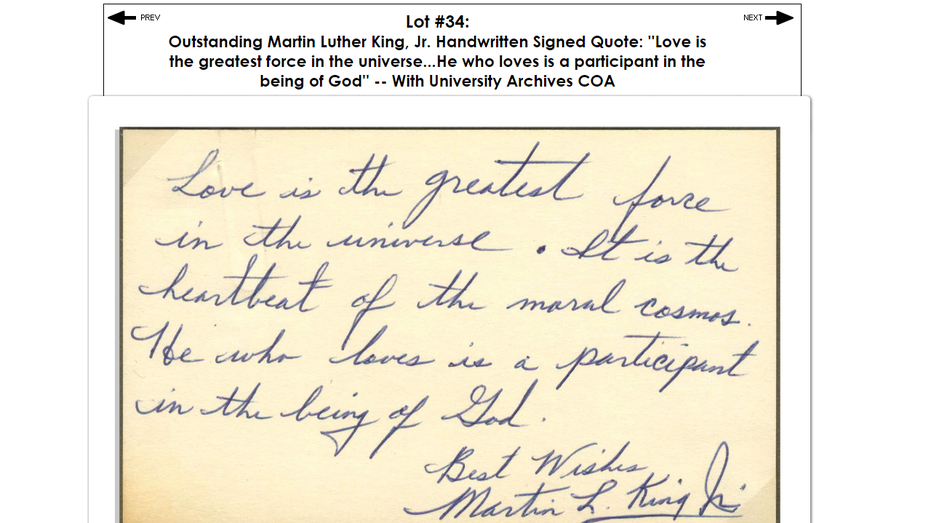 PREV
NEXT
Lot #34:
Outstanding Martin Luther King, Jr. Handwritten Signed Quote: "Love is
the greatest force in the universe...He who loves is a participant in the
being of God" -- With University Archives COA
Love is the greatest force
in the universe. It is the
heartbeat of the moral cosmos.
He who loves is a participant
in the being of God.
Best Wishes
Martin L. King Jr.